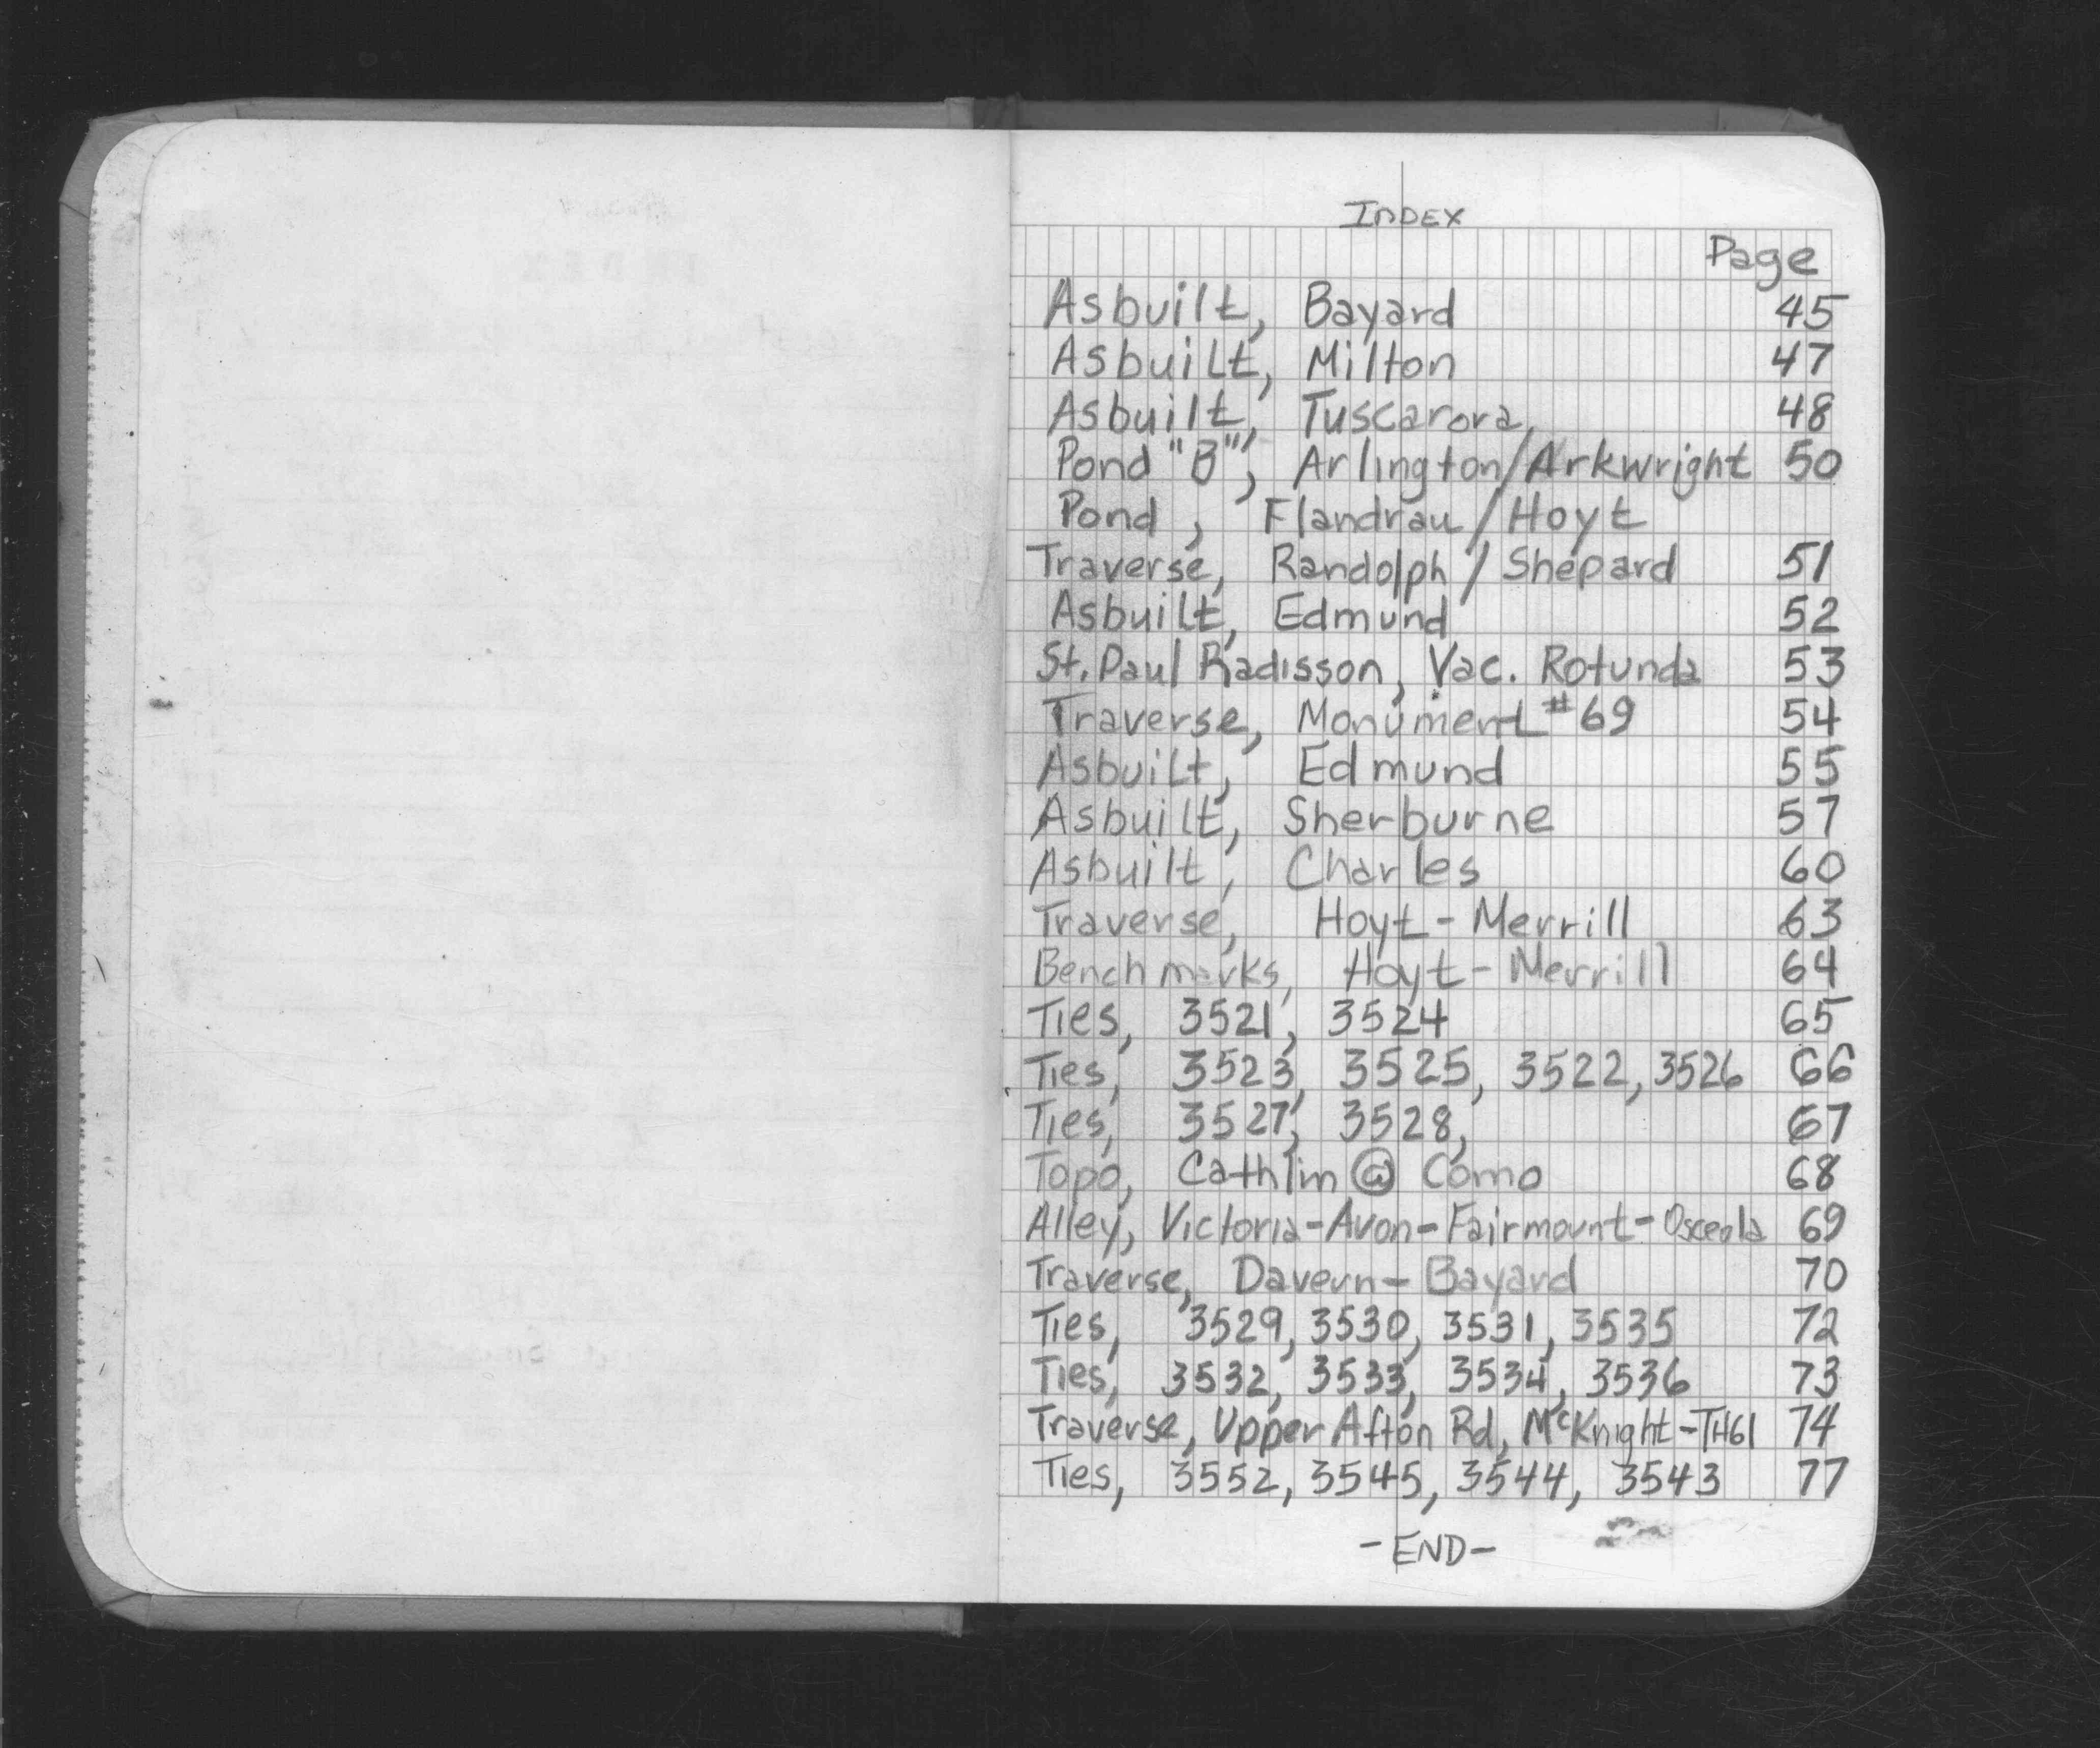 INDEX
Page
Asbuilt, Bayard 45
Asbuilt, Milton 47
Asbuilt, Tuscarora 48
Pond "B", Arlington/Arkwright 50
Pond, Flandrau/Hoyt
Traverse, Randolph/Shepard 51
Asbuilt, Edmund 52
St. Paul Radisson, Vac. Rotunda 53
Traverse, Monument #69 54
Asbuilt, Edmund 55
Asbuilt, Sherburne 57
Asbuilt, Charles 60
Traverse, Hoyt-Merrill 63
Bench marks, Hoyt-Merrill 64
Ties, 3521, 3524 65
Ties, 3523, 3525, 3522, 3526 66
Ties, 3527, 3528, 67
Topo, Cathlin @ Como 68
Alley, Victoria-Avon-Fairmount-Osceola 69
Traverse, Davern-Bayard 70
Ties, 3529, 3530, 3531, 3535 72
Ties, 3532, 3533, 3534, 3536 73
Traverse, Upper Afton Rd, McKnight-TH61 74
Ties, 3552, 3545, 3544, 3543 77
-END-